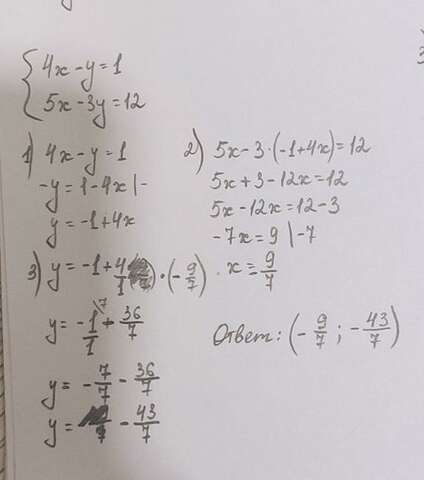 4x - y = 1
5x - 3y = 12
1) 4x - y = 1
-y = 1 - 4x | -
y = -1 + 4x
2) 5x - 3 · (-1 + 4x) = 12
5x + 3 - 12x = 12
5x - 12x = 12 - 3
-7x = 9 | -7
x = 9/7
3) y = -1 + 4/1 · (-9/7)
y = -1/1 \7 - 36/7
y = -7/7 - 36/7
y = - 43/7
Ответ: (-9/7 ; -43/7)